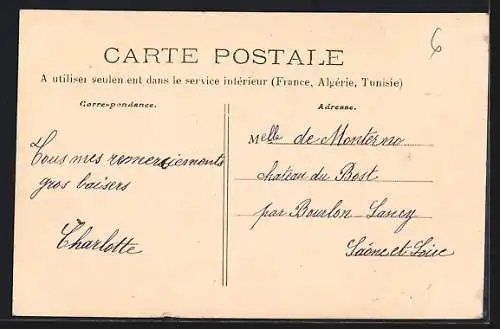 6
CARTE POSTALE
A utiliser seulement dans le service intérieur (France, Algérie, Tunisie)
Correspondance.
Adresse.
Tous mes remerciements
gros baisers
Charlotte
Melle de Monterno
chateau du Bost
par Bourbon Lancy
Saône et Loire